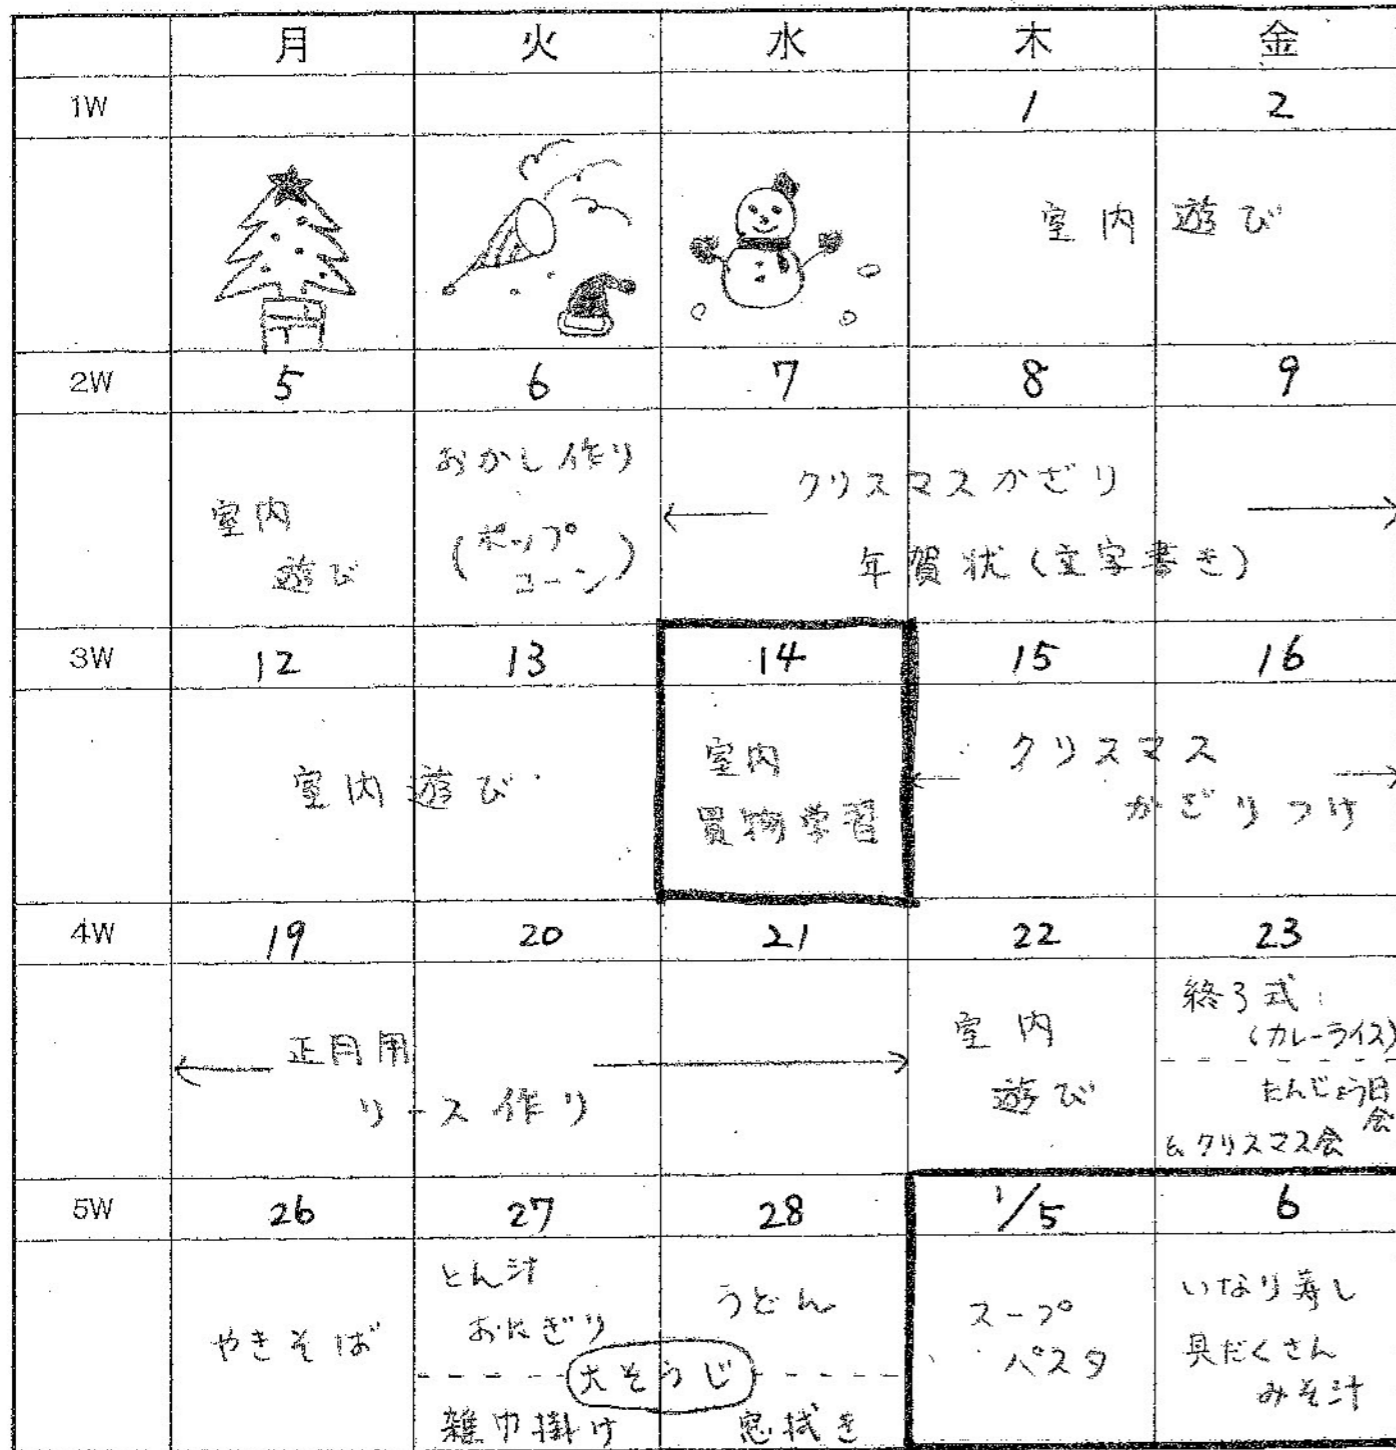 月 火 水 木 金
1W 1 2
室内遊び
2W 5 6 7 8 9
室内
遊び
おかし作り
(ポップ
コーン)
クリスマスかざり
年賀状(文字書き)
3W 12 13 14 15 16
室内遊び
室内
買物学習
クリスマス
かざりつけ
4W 19 20 21 22 23
正月用
リース作り
室内
遊び
終了式
(カレーライス)
たんじょう日
会
& クリスマス会
5W 26 27 28 1/5 6
やきそば
とん汁
おにぎり
うどん
大そうじ
雑巾掛け
窓拭き
スープ
パスタ
いなり寿し
具だくさん
みそ汁